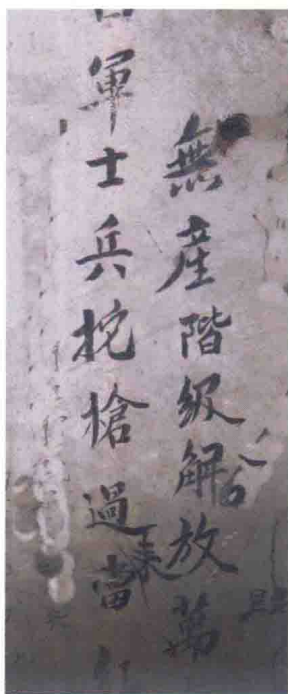 無産階級解放萬
軍士兵拕槍過來當紅